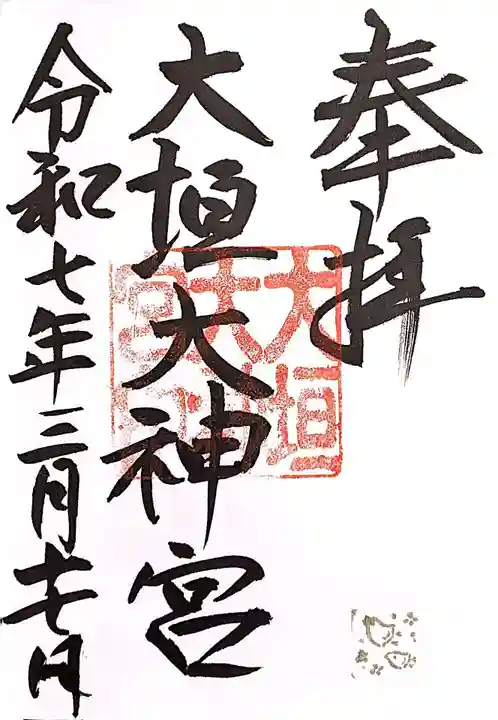 奉拝
大垣大神宮
大垣
大神
宮印
令和七年三月十七日